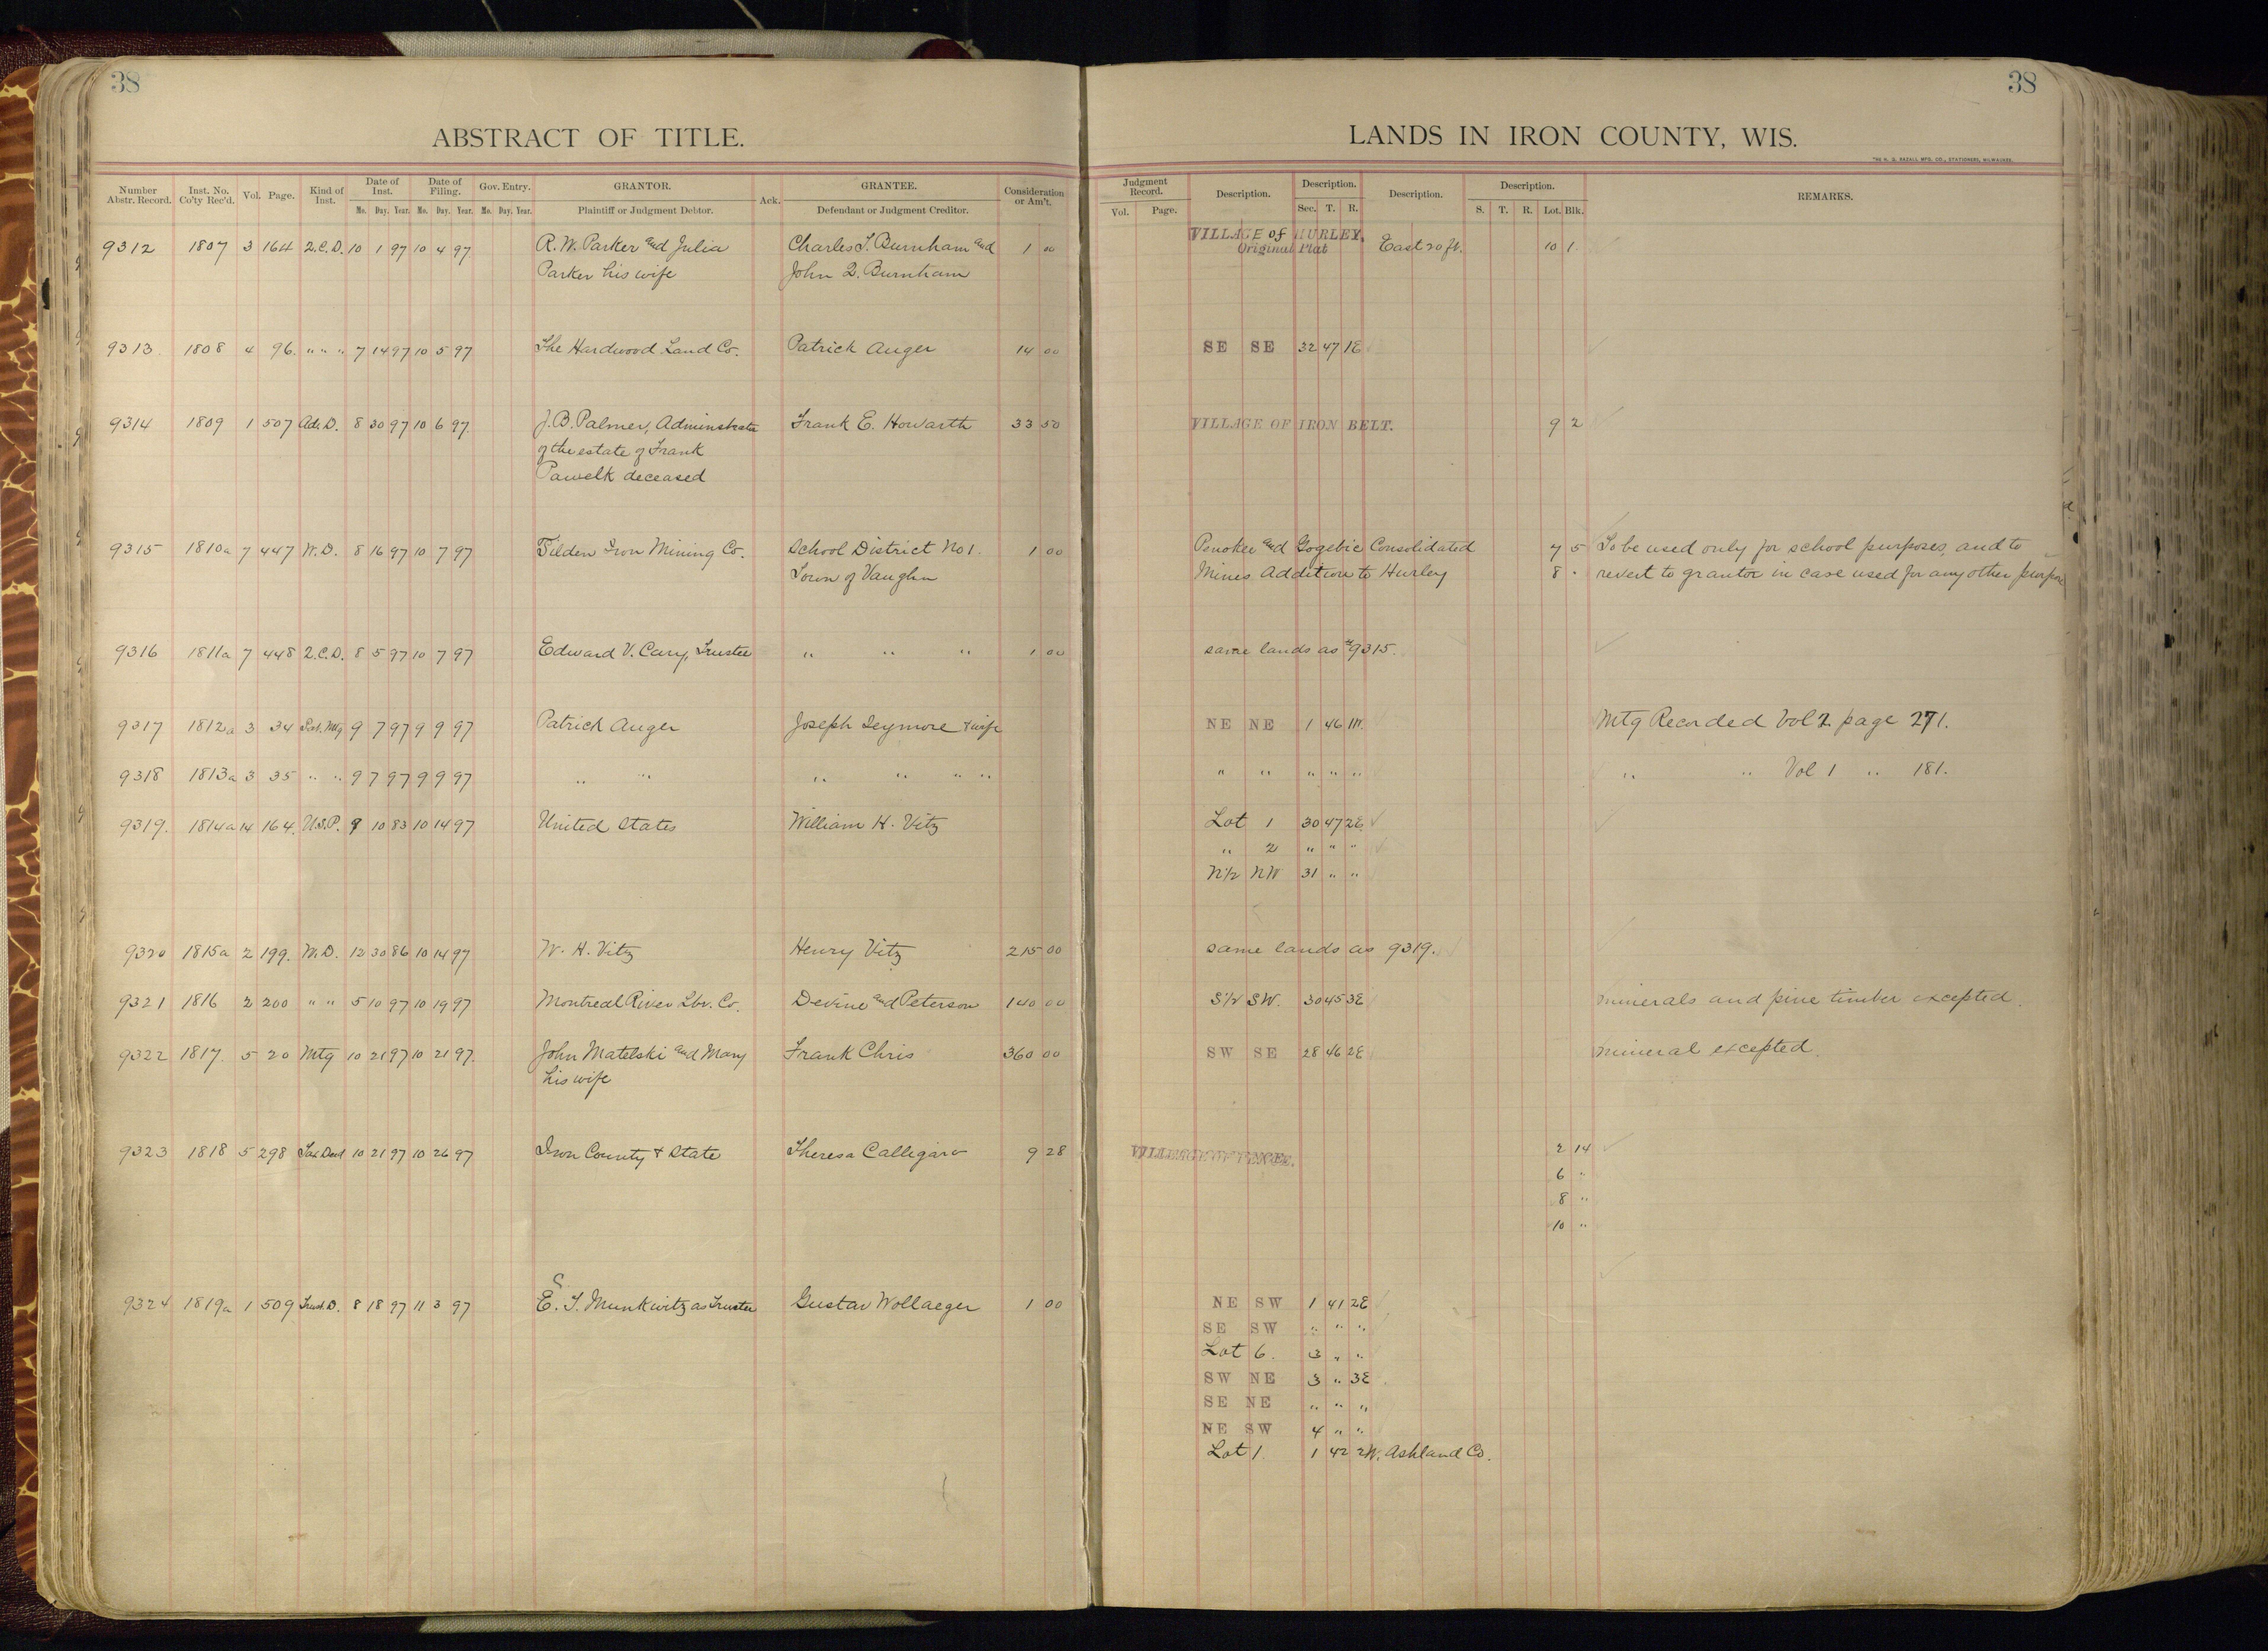 38
38
ABSTRACT OF TITLE.
LANDS IN IRON COUNTY, WIS.
THE H. G. RAZALL MFG. CO., STATIONERS, MILWAUKEE.
Number Abstr. Record. Inst. No. Co'ty Rec'd. Vol. Page. Kind of Inst. Date of Inst. Mo. Day. Year. Date of Filing. Mo. Day. Year. Gov. Entry. Mo. Day. Year. GRANTOR. Plaintiff or Judgment Debtor. Ack. GRANTEE. Defendant or Judgment Creditor. Consideration or Am't.
Judgment Record. Vol. Page. Description. Description. Sec. T. R. Description. Description. S. T. R. Lot. Blk. REMARKS.
9312 1807 3 164 2.C.D. 10 1 97 10 4 97 R. W. Parker and Julia Charles T. Burnham and 1 00 VILLAGE of HURLEY. East 20 ft. 10 1
Parker his wife John Q. Burnham Original Plat
9313 1808 4 96 " " " 7 14 97 10 5 97 The Hardwood Land Co. Patrick Auger 14 00 SE SE 32 47 1E
9314 1809 1 507 Adr. D. 8 30 97 10 6 97 J. B. Palmer, Adminstrator Frank E. Howarth 33 50 VILLAGE OF IRON BELT. 9 2
of the estate of Frank
Pawelk deceased
9315 1810a 7 447 W.D. 8 16 97 10 7 97 Tilden Iron Mining Co. School District No 1. 1 00 Penokee and Gogebic Consolidated 7 5 To be used only for school purposes, and to
Town of Vaughn Mines Addition to Hurley 8 " revert to grantor in case used for any other purpose
9316 1811a 7 448 2.C.D. 8 5 97 10 7 97 Edward V. Cary, Trustee " " " 1 00 same lands as #9315.
9317 1812a 3 34 Sat. Mtg 9 7 97 9 9 97 Patrick Auger Joseph Seymore + wife NE NE 1 46 1W. Mtg Recorded Vol 2 page 271.
9318 1813a 3 35 " " 9 7 97 9 9 97 " " " " " " " " " " " " " Vol 1 " 181.
9319. 1814a 14 164. U.S.P. 9 10 83 10 14 97 United States William H. Vitz Lot 1 30 47 2E
" 2 " " "
N½ NW 31 " "
9320 1815a 2 199. W.D. 12 30 86 10 14 97 W. H. Vitz Henry Vitz 215 00 same lands as 9319.
9321 1816 2 200 " " 5 10 97 10 19 97 Montreal River Lbr. Co. Devine and Peterson 140 00 S½ SW. 30 45 3E minerals and pine timber excepted.
9322 1817. 5 20 Mtg 10 21 97 10 21 97. John Matelski and Mary Frank Chris 360 00 SW SE 28 46 2E mineral excepted.
his wife
9323 1818 5 298 Tax Deed 10 21 97 10 26 97 Iron County + State Theresa Calligaro 9 28 2 14
6 "
8 "
10 "
9324 1819a 1 509 Trust. D. 8 18 97 11 3 97 E. T. Munkwitz as Trustee Gustav Wollaeger 1 00 NE SW 1 41 2E
SE SW " " "
Lot 6. 3 " "
SW NE 3 " 3E
SE NE " " "
NE SW 4 " "
Lot 1. 1 42 2W. Ashland Co.